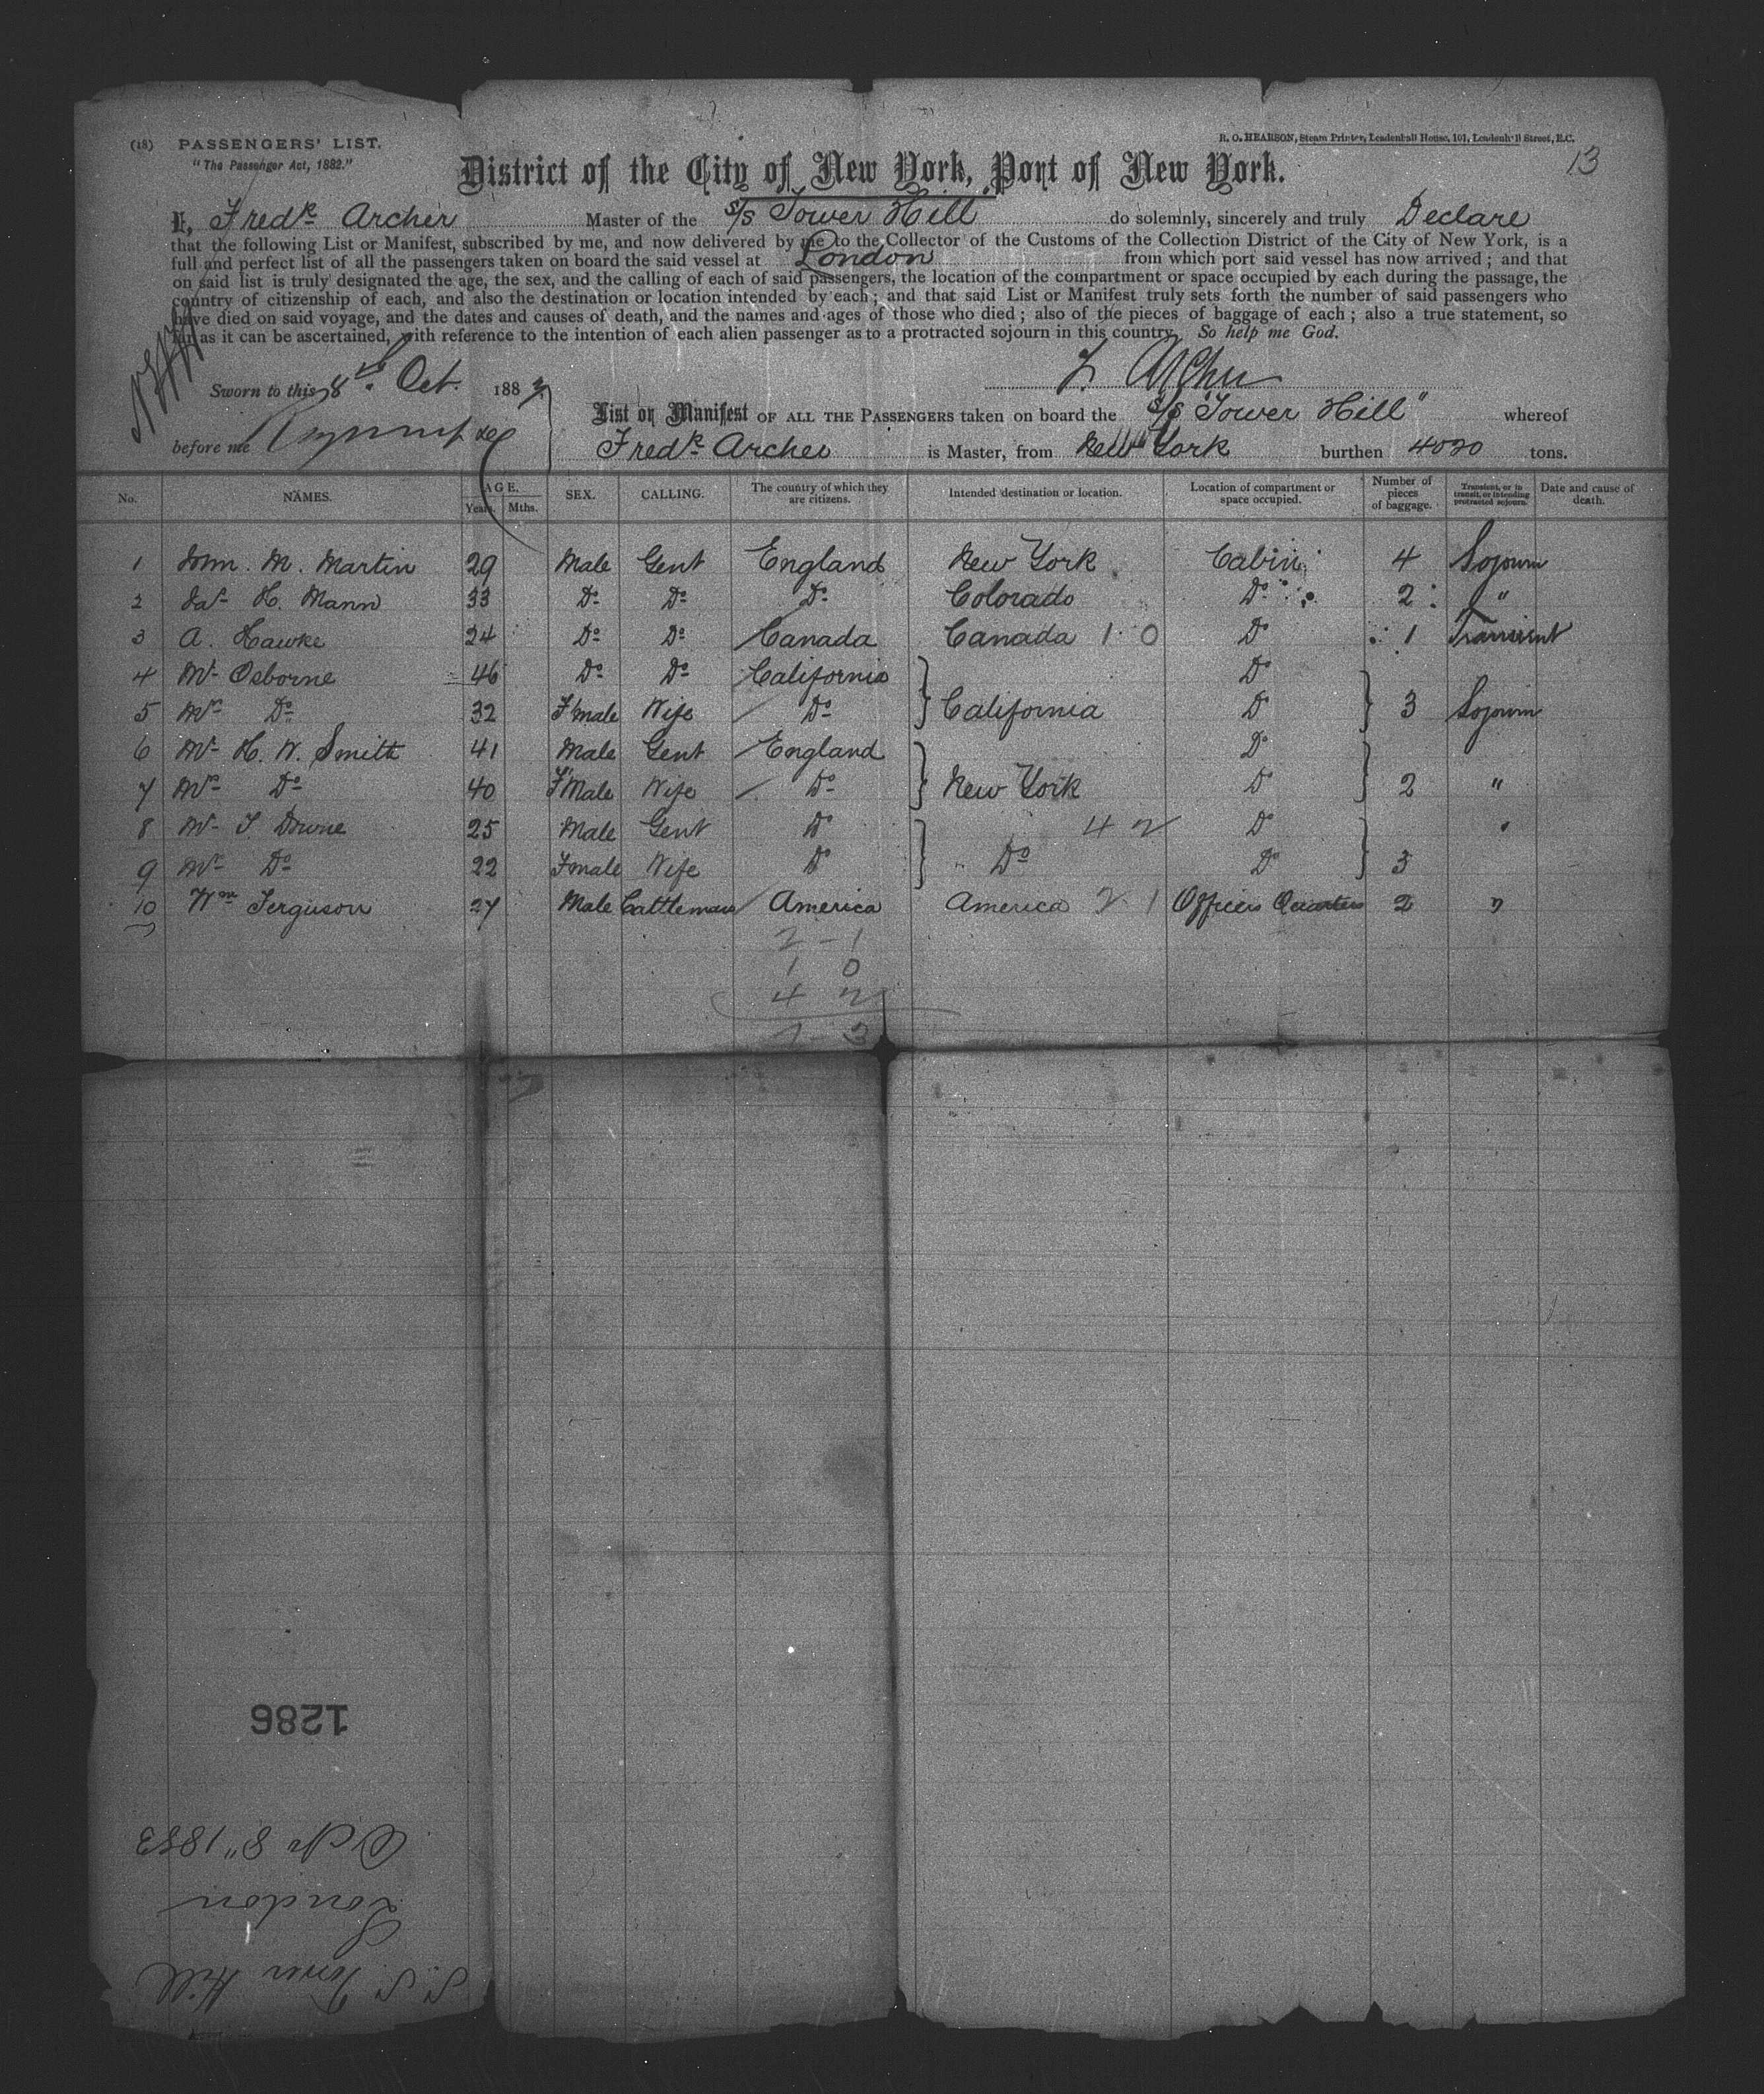 (18) PASSENGERS' LIST.
"The Passenger Act, 1882."
R. O. HEARSON, Steam Printer, Leadenhall House, 101, Leadenhall Street, E.C.
13
District of the City of New York, Port of New York.
I, Fredk Archer Master of the S/S "Tower Hill" do solemnly, sincerely and truly Declare
that the following List or Manifest, subscribed by me, and now delivered by me to the Collector of the Customs of the Collection District of the City of New York, is a
full and perfect list of all the passengers taken on board the said vessel at London from which port said vessel has now arrived ; and that
on said list is truly designated the age, the sex, and the calling of each of said passengers, the location of the compartment or space occupied by each during the passage, the
country of citizenship of each, and also the destination or location intended by each ; and that said List or Manifest truly sets forth the number of said passengers who
have died on said voyage, and the dates and causes of death, and the names and ages of those who died ; also of the pieces of baggage of each ; also a true statement, so
far as it can be ascertained, with reference to the intention of each alien passenger as to a protracted sojourn in this country. So help me God.
Sworn to this 8th Oct. 1883 F. Archer
List or Manifest OF ALL THE PASSENGERS taken on board the S/S "Tower Hill" whereof
before me Fredk Archer is Master, from New York burthen 4020 tons.
No. NAMES. AGE. Years. Mths. SEX. CALLING. The country of which they are citizens. Intended destination or location. Location of compartment or space occupied. Number of pieces of baggage. Transient, or in transit, or intending protracted sojourn. Date and cause of death.
1 John. M. Martin 29 Male Gent England New York Cabin 4 Sojourn
2 Jas H. Mann 33 Do Do Do Colorado Do 2 "
3 A. Hawke 24 Do Do Canada Canada 1 0 Do 1 Transient
4 Mr Osborne 46 Do Do California Do
5 Mrs Do 32 F'male Wife Do California Do 3 Sojourn
6 Mr H. W. Smith 41 Male Gent England Do
7 Mrs Do 40 F'Male Wife Do New York Do 2 "
8 Mr 25 Male Gent Do 4 2 Do "
9 Mrs Do 22 Fmale Wife Do Do Do 3
10 Wm Ferguson 27 Male Cattleman America America 2 1 Officers Quarters 2 "
2 - 1
1 0
4 2
7 - 3
1286
Octr 8" 1883
London
S. S. Tower Hill